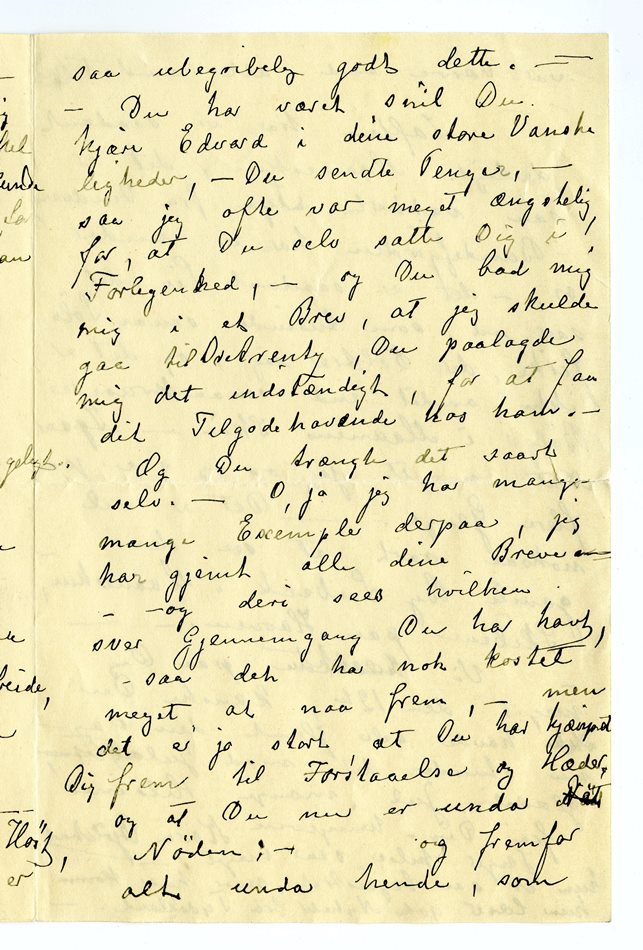 saa ubegribelig godt dette. —
— Du har været snil Du
kjære Edvard i dine store Vanske
ligheder, — Du sendte Penge, —
saa jeg ofte var meget ængstelig
for, at Du selv satte Dig i
Forlegenhed, — og Du bad mig
mig i et Brev, at jeg skulde
gaa til Arentz, Du paalagde
mig det indstændigt, for at faa
dit Tilgodehavende hos ham. —
Og Du trængte det saart
selv. — O, ja jeg har mange
mange Exempler derpaa, jeg
har gjemt alle dine Breve —
— og deri sees hvilken
svær Gjennemgang Du har havt,
— saa det har nok kostet
meget at naa frem, — men
det er jo stort at Du har kjæmpet
Dig frem til Forstaaelse og Hæder,
og at Du nu er unda
Nøden; — og fremfor
alt unda hende, som
unde
Høst,
er